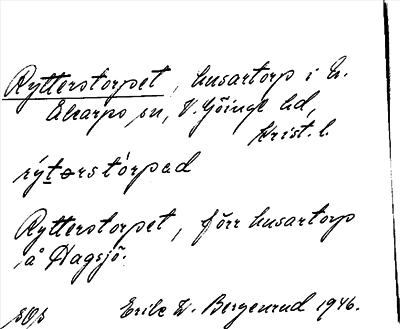 Rytterstorpet, husartorp i N.
Åkarps sn, V. Göinge hd,
Krist. l.
rýtərstòrpəd
Rytterstorpet, förr husartorp
å Hagsjö.
Erik W. Bergenrud 1946.